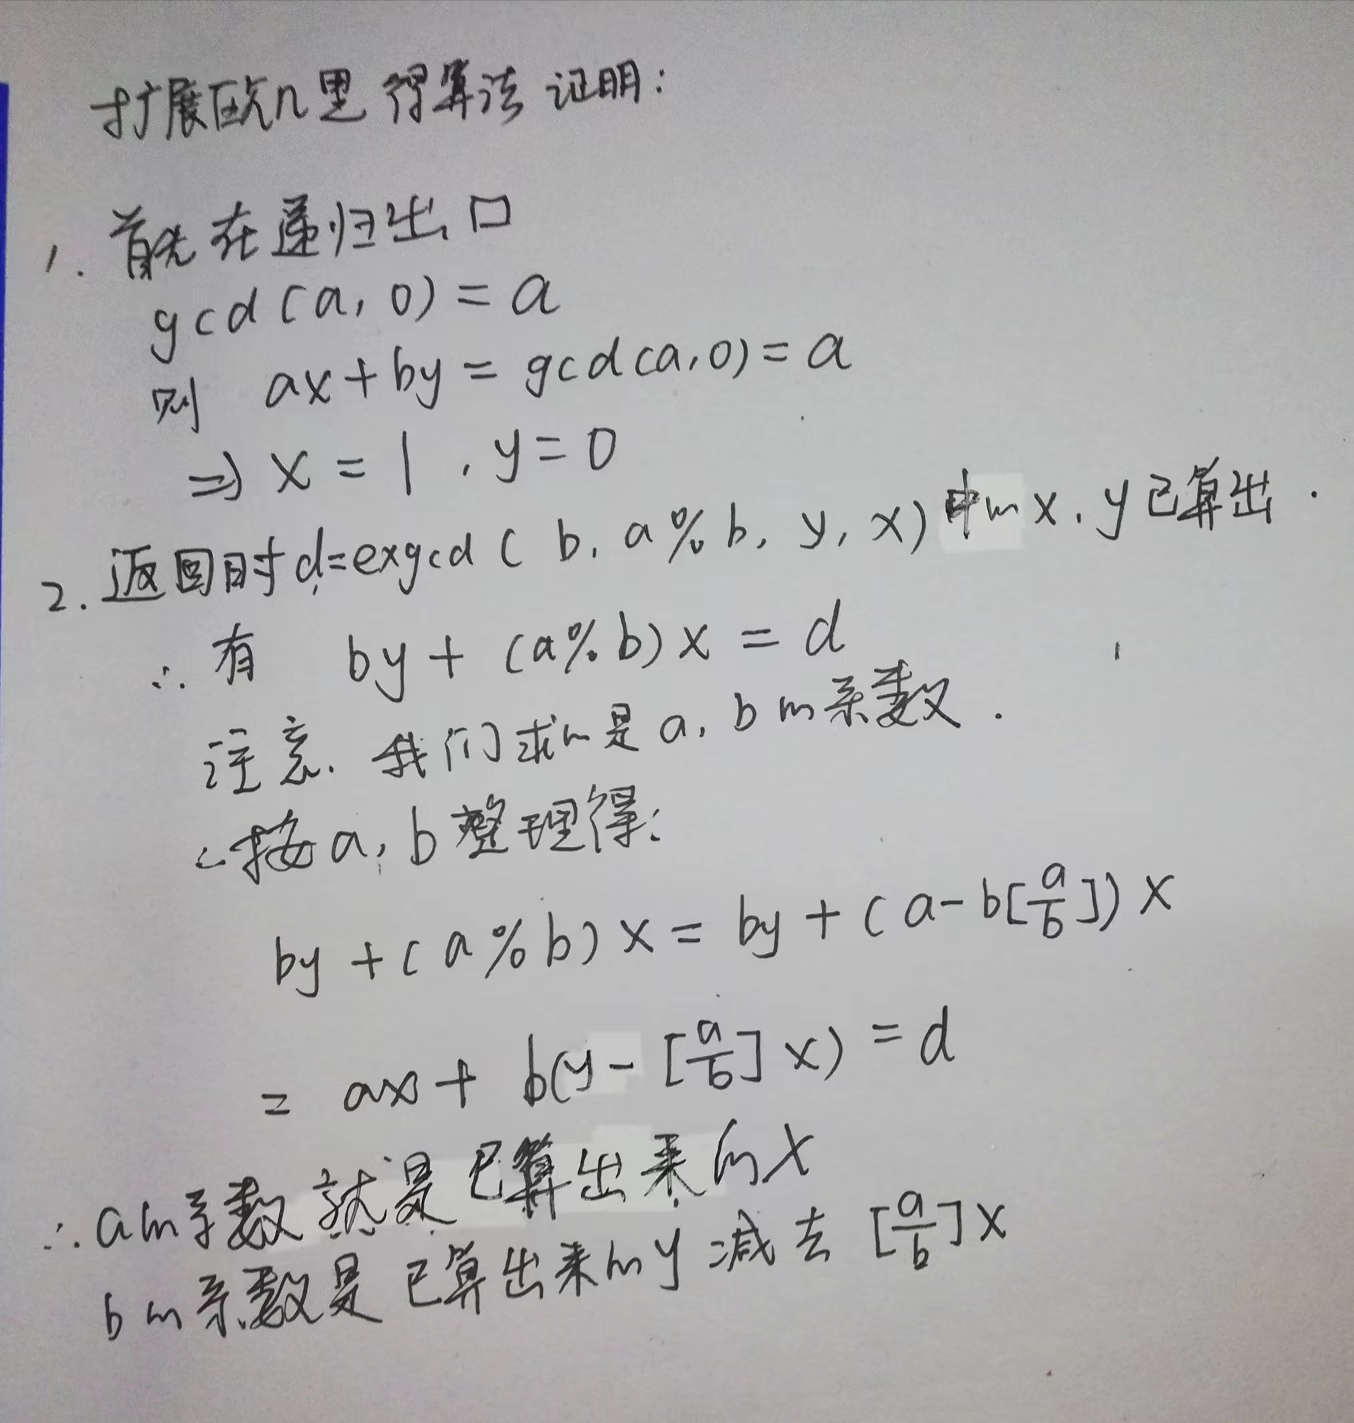 扩展欧几里得算法证明:
1. 首先在递归出口
gcd(a,0)=a
则 ax+by=gcd(a,0)=a
⇒ x=1,y=0
2. 返回时d=exgcd(b,a%b,y,x)中的x,y已算出.
∴有 by+(a%b)x=d
注意,我们求的是a,b的系数.
∴按a,b整理得:
by+(a%b)x=by+(a-b[a/b])x
=ax+b(y-[a/b]x)=d
∴a的系数就是已算出来的x
b的系数是已算出来的y减去[a/b]x